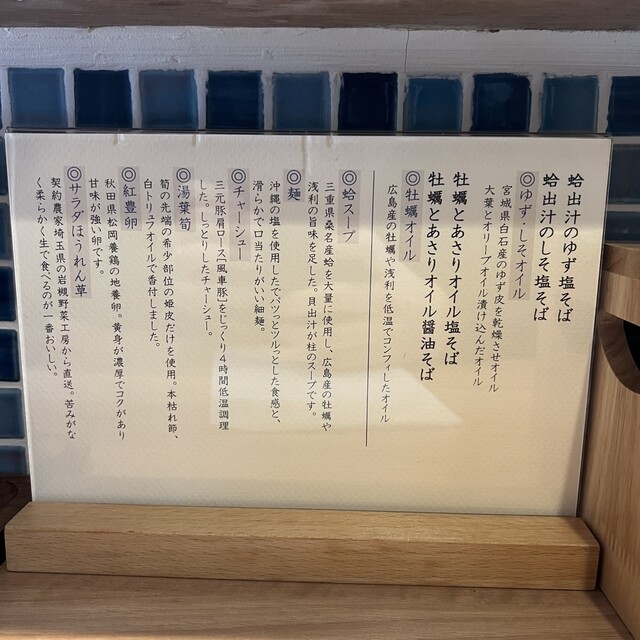 蛤出汁のゆず塩そば
蛤出汁のしそ塩そば
◎ゆず・しそオイル
宮城県白石産のゆず皮を乾燥させオイル
大葉とオリーブオイル漬け込んだオイル
牡蠣とあさりオイル塩そば
牡蠣とあさりオイル醤油そば
◎牡蠣オイル
広島産の牡蠣や浅利を低温でコンフィしたオイル
◎蛤スープ
三重県桑名産蛤を大量に使用し、広島産の牡蠣や
浅利の旨味を足した。貝出汁が柱のスープです。
◎麺
沖縄の塩を使用したでパツっとツルっとした食感と、
滑らかで口当たりがいい細麺。
◎チャーシュー
三元豚肩ロース[風車豚]をじっくり4時間低温調理
した。しっとりしたチャーシュー。
◎湯葉筍
筍の先端の希少部位の姫皮だけを使用。本枯れ節、
白トリュフオイルで香付しました。
◎紅豊卵
秋田県松岡養鶏の地養卵。黄身が濃厚でコクがあり
甘味が強い卵です。
◎サラダほうれん草
契約農家埼玉県の岩槻野菜工房から直送。苦みがな
く柔らかく生で食べるのが一番おいしい。